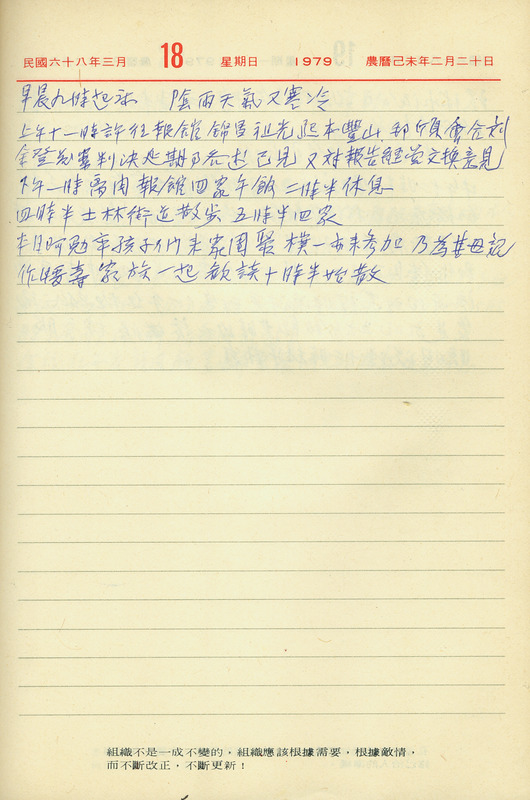 民國六十八年三月 18 星期日 1979 農曆己未年二月二十日
早晨九時起床 陰雨天氣又寒冷
上午十一時許往報館 錦昌祖光 本豐山
判決 期 各述己見 又對報告經營交換意見
下午一時離開報館回家午飯 二時半休息
四時半士林街近散步 五時半回家
本日阿勉率孩子們來家團聚 樸一亦來參加 乃為其母親
作暖壽 家族一起歡談十時半始散
組織不是一成不變的，組織應該根據需要，根據敵情，
而不斷改正，不斷更新！